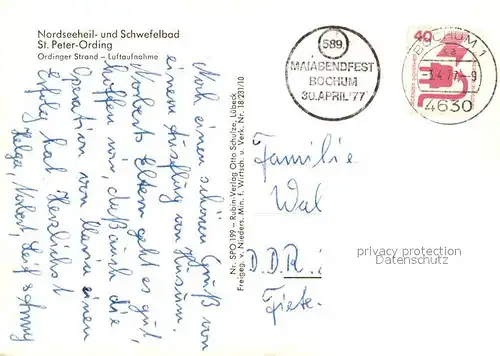 Nordseeheil- und Schwefelbad
St. Peter-Ording
Ordinger Strand – Luftaufnahme
Noch einen schönen Gruß von
einem Ausflug von Husum.
Norberts Eltern geht es gut,
hoffen wir, daß auch die
Operation von Maria einen
Erfolg hat. Herzlichst
Helga, Norbert,
Nr. SPO 199 – Rubin-Verlag Otto Schulze, Lübeck
Freigeg. v. Nieders. Min. f. Wirtsch. u. Verk. Nr. 18/231/10
589.
MAIABENDFEST
BOCHUM
30.APRIL '77
40
BOCHUM 1
4630
Familie
Wal
D.D.R.
privacy protection
datenschutz